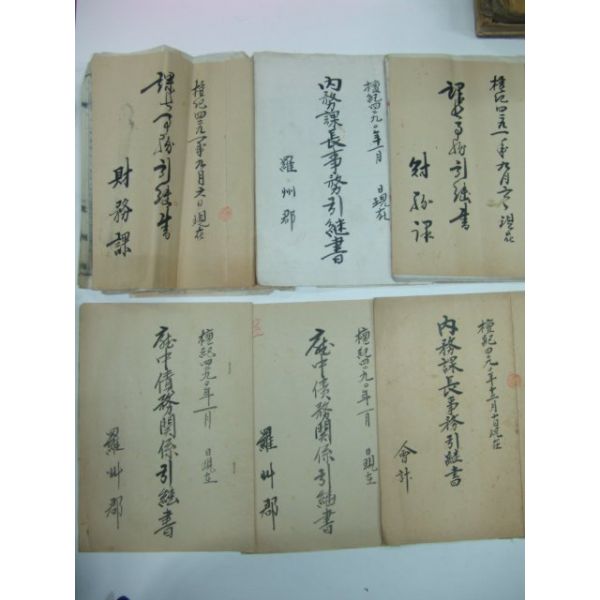 檀紀四二九一年九月六日現在
課長事務引継書
財務課
檀紀四二九〇年一月 日現在
内務課長事務引継書
羅州郡
檀紀四二九一年九月六日現在
課長事務引継書
財務課
檀紀四二九〇年一月 日現在
庁中債務関係引継書
羅州郡
檀紀四二九〇年一月 日現在
庁中債務関係引継書
羅州郡
檀紀四二九〇年十二月十日現在
内務課長事務引継書
会計